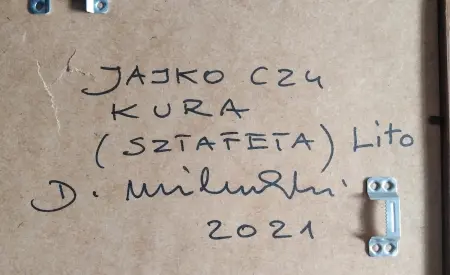 JAJKO CZY
KURA
(SZTAFETA) Lito
D.
2021